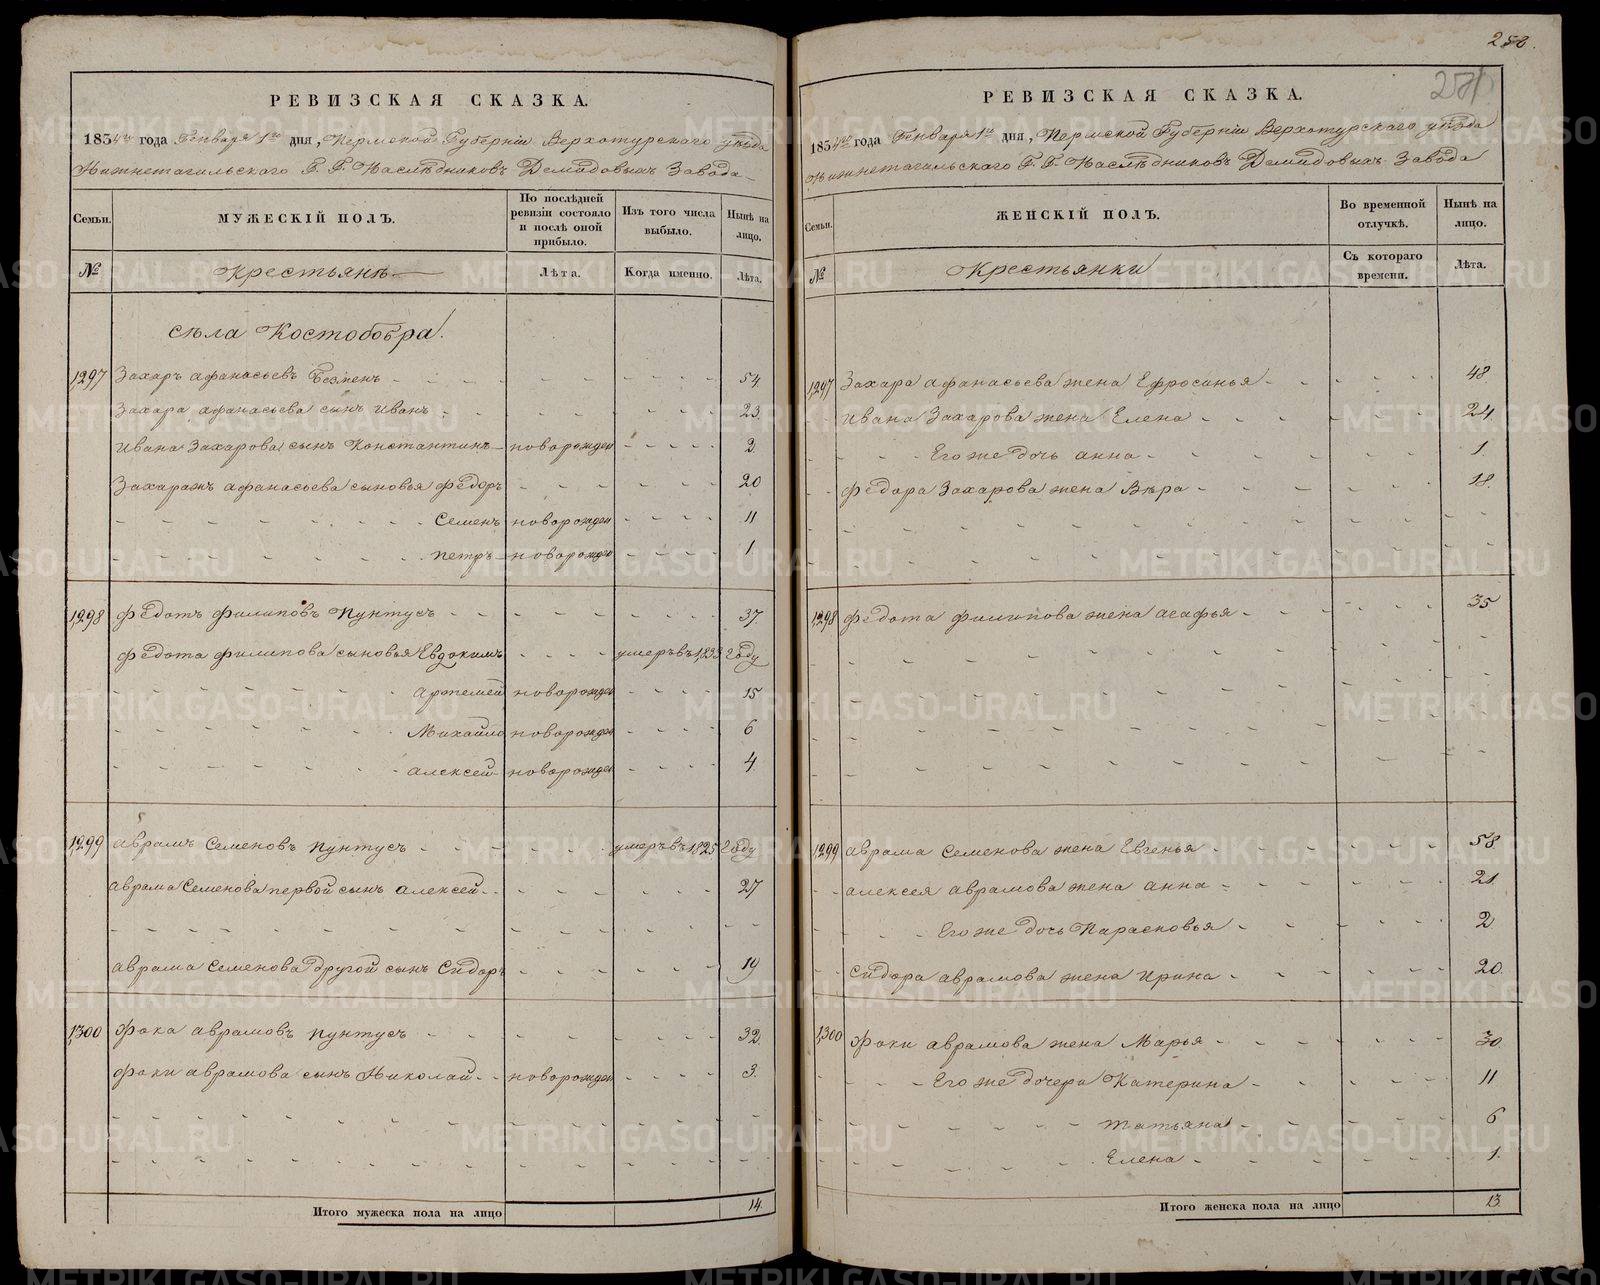 258.
251
РЕВИЗСКАЯ СКАЗКА.
1834го года Генваря 1го дня, Пермской Губерніи Верхотурского уѣзда
Нижнетагильского Г. Г. Наслѣдниковъ Демидовыхъ Завода
Семьи. МУЖЕСКІЙ ПОЛЪ. По послѣдней ревизіи состояло и послѣ оной прибыло. Изъ того числа выбыло. Нынѣ на лицо.
№ Крестьянѣ Лѣта. Когда именно. Лѣта.
сѣла Костобобра
1,297 Захаръ афанасьевъ Безменъ 54
Захара афанасьева сынъ иванъ 23
ивана Захарова сынъ Константинъ новорожден 2
Захаражъ афанасьева сыновья Федоръ 20
Семенъ новорожден 11
петръ новорожден 1
1,298 федотъ филиповъ Пунтусъ 37
федота филипова сыновья Евдокимъ умеръ въ 1,833 году
артемей новорожден 15
Михайло новорожден 6
алексей новорожден 4
1,299 аврамъ Семеновъ пунтусъ умеръ въ 1825 году
аврама Семенова первой сынъ алексей 27
аврама Семенова другой сынъ Сидоръ 19
1,300 фока аврамовъ пунтусъ 32
фоки аврамова сынъ Николай новорожден 3
Итого мужеска пола на лицо 14
РЕВИЗСКАЯ СКАЗКА.
1834го года Генваря 1го дня, Пермской Губерніи Верхотурского уѣзда
Нижнетагильского Г. Г. Наслѣдниковъ Демидовыхъ Завода
Семьи. ЖЕНСКІЙ ПОЛЪ. Во временной отлучкѣ. Нынѣ на лицо.
№ Крестьянки Съ котораго времени. Лѣта.
1,297 Захара афанасьева жена Ефросинья 48
ивана Захарова жена Елена 24
Его же дочь анна 1
федора Захарова жена Вѣра 18
1,298 федота филипова жена агафья 35
1,299 аврама Семенова жена Евгенья 58
алексея аврамова жена анна 21
Его же дочь Парасковья 2
Сидора аврамова жена ирина 20
1,300 фоки аврамова жена Марья 30
Его же дочери Катерина 11
татьяна 6
Елена 1
Итого женска пола на лицо 13
METRIKI.GASO-URAL.RU